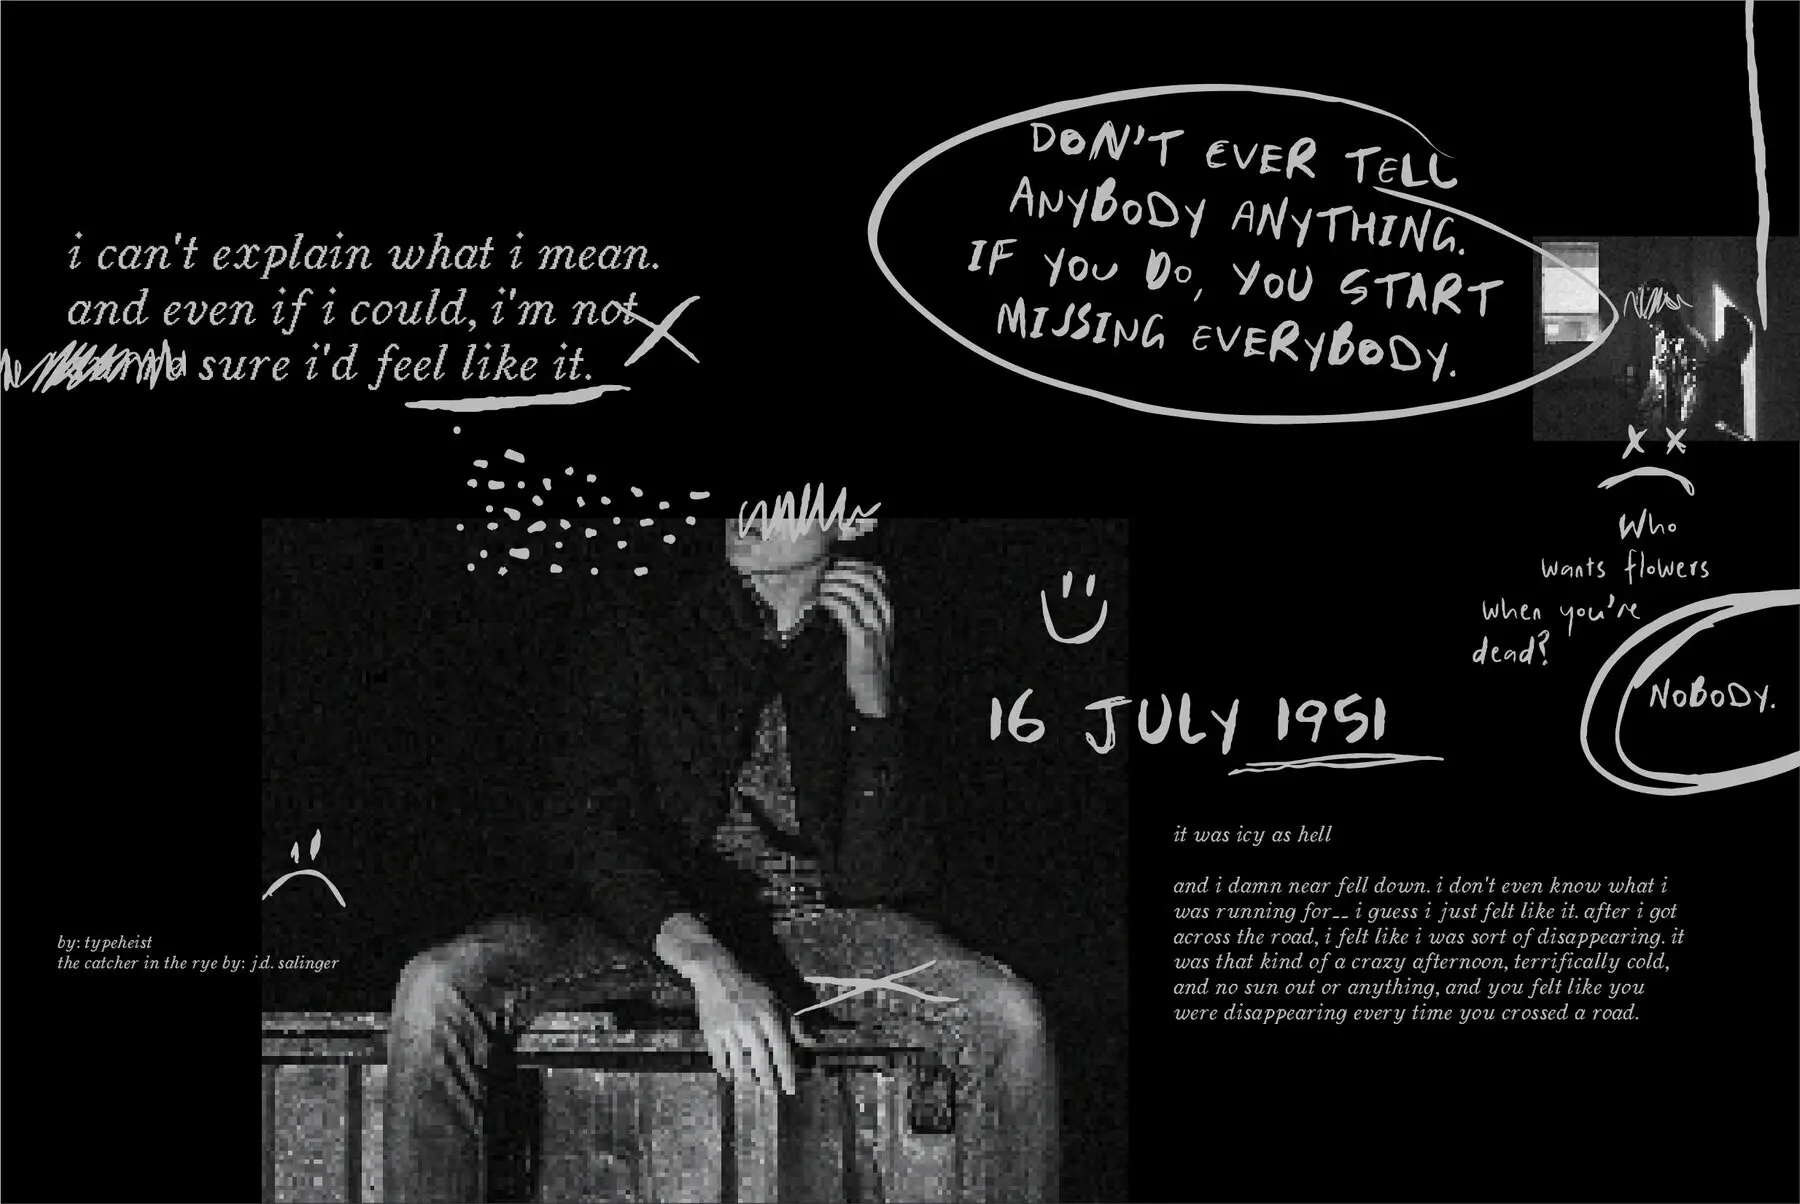 i can't explain what i mean.
and even if i could, i'm not
sure i'd feel like it.
DON'T EVER TELL
ANYBODY ANYTHING.
IF YOU DO, YOU START
MISSING EVERYBODY.
Who
wants flowers
when you're
dead?
NOBODY.
16 JULY 1951
it was icy as hell
and i damn near fell down. i don't even know what i
was running for-- i guess i just felt like it. after i got
across the road, i felt like i was sort of disappearing. it
was that kind of a crazy afternoon, terrifically cold,
and no sun out or anything, and you felt like you
were disappearing every time you crossed a road.
by: typeheist
the catcher in the rye by: j.d. salinger